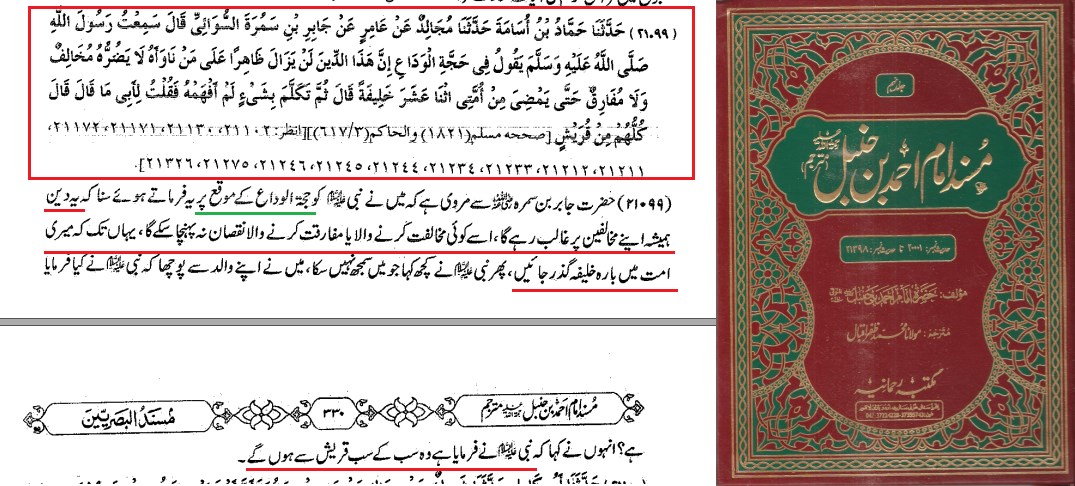 (۲۱۰۹۹) حَدَّثَنَا حَمَّادُ بْنُ أُسَامَةَ حَدَّثَنَا مُجَالِدٌ عَنْ عَامِرٍ عَنْ جَابِرِ بْنِ سَمُرَةَ السُّوَائِيِّ قَالَ سَمِعْتُ رَسُولَ اللَّهِ
صَلَّى اللَّهُ عَلَيْهِ وَسَلَّمَ يَقُولُ فِي حَجَّةِ الْوَدَاعِ إِنَّ هَذَا الدِّينَ لَنْ يَزَالَ ظَاهِرًا عَلَى مَنْ نَاوَأَهُ لَا يَضُرُّهُ مُخَالِفٌ
وَلَا مُفَارِقٌ حَتَّى يَمْضِيَ مِنْ أُمَّتِي اثْنَا عَشَرَ خَلِيفَةً قَالَ ثُمَّ تَكَلَّمَ بِشَيْءٍ لَمْ أَفْهَمْهُ فَقُلْتُ لِأَبِي مَا قَالَ قَالَ
كُلُّهُمْ مِنْ قُرَيْشٍ [صححه مسلم (۱۸۲۱) والحاكم (۶۱۷/۳)][انظر: ۲۱۱۰۲، ۲۱۱۳۰، ۲۱۱۷۱، ۲۱۱۷۲،
۲۱۲۱۱، ۲۱۲۱۲، ۲۱۲۳۳، ۲۱۲۳۴، ۲۱۲۴۴، ۲۱۲۴۵، ۲۱۲۴۶، ۲۱۲۷۵، ۲۱۳۲۶].
(۲۱۰۹۹) حضرت جابر بن سمرہ ؓ سے مروی ہے کہ میں نے نبی ﷺ کو حجۃ الوداع کے موقع پر یہ فرماتے ہوئے سنا کہ یہ دین
ہمیشہ اپنے مخالفین پر غالب رہے گا، اسے کوئی مخالفت کرنے والا یا مفارقت کرنے والا نقصان نہ پہنچا سکے گا، یہاں تک کہ میری
امت میں بارہ خلیفہ گذر جائیں، پھر نبی ﷺ نے کچھ کہا جو میں سمجھ نہیں سکا، میں نے اپنے والد سے پوچھا کہ نبی ﷺ نے کیا فرمایا
مُسنَد امام احمد بن حنبل مترجم
۳۳۰
مُسْنَدُ البَصَرِيِّينَ
ہے؟ انہوں نے کہا کہ نبی ﷺ نے فرمایا ہے وہ سب کے سب قریش سے ہوں گے۔
جلد نہم
مُسند امام احمد بن حنبل
(مترجم)
حدیث نمبر: ۲۰۰۰۱ تا حدیث نمبر: ۲۱۳۹۸
مؤلف: حضرت امام احمد بن حنبل
مترجم: مولانا محمد ظفر اقبال
مکتبہ رحمانیہ